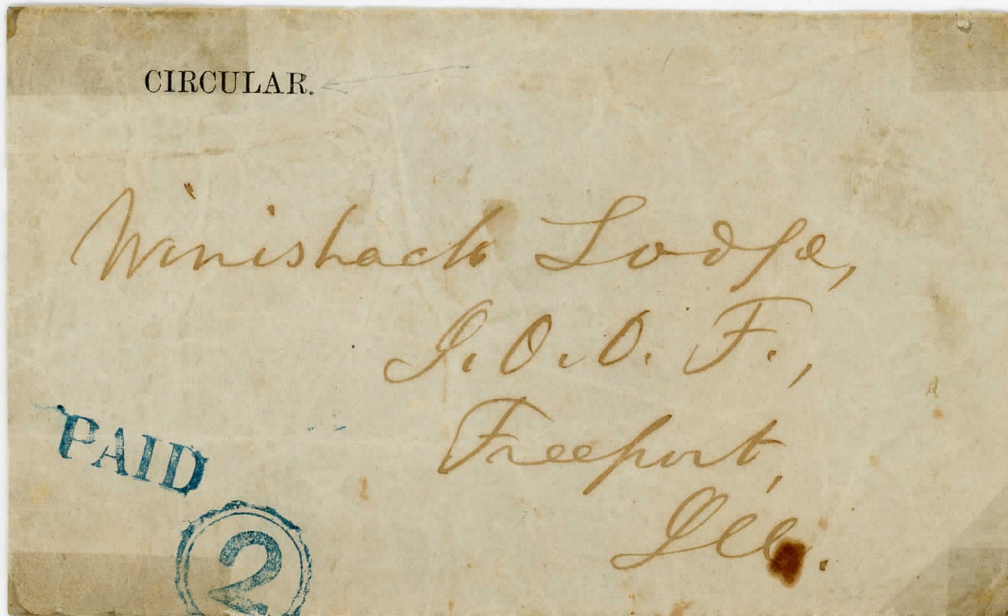 CIRCULAR.
Winishack Lodge,
I. O. O. F.,
Freeport,
Ill.
PAID
2